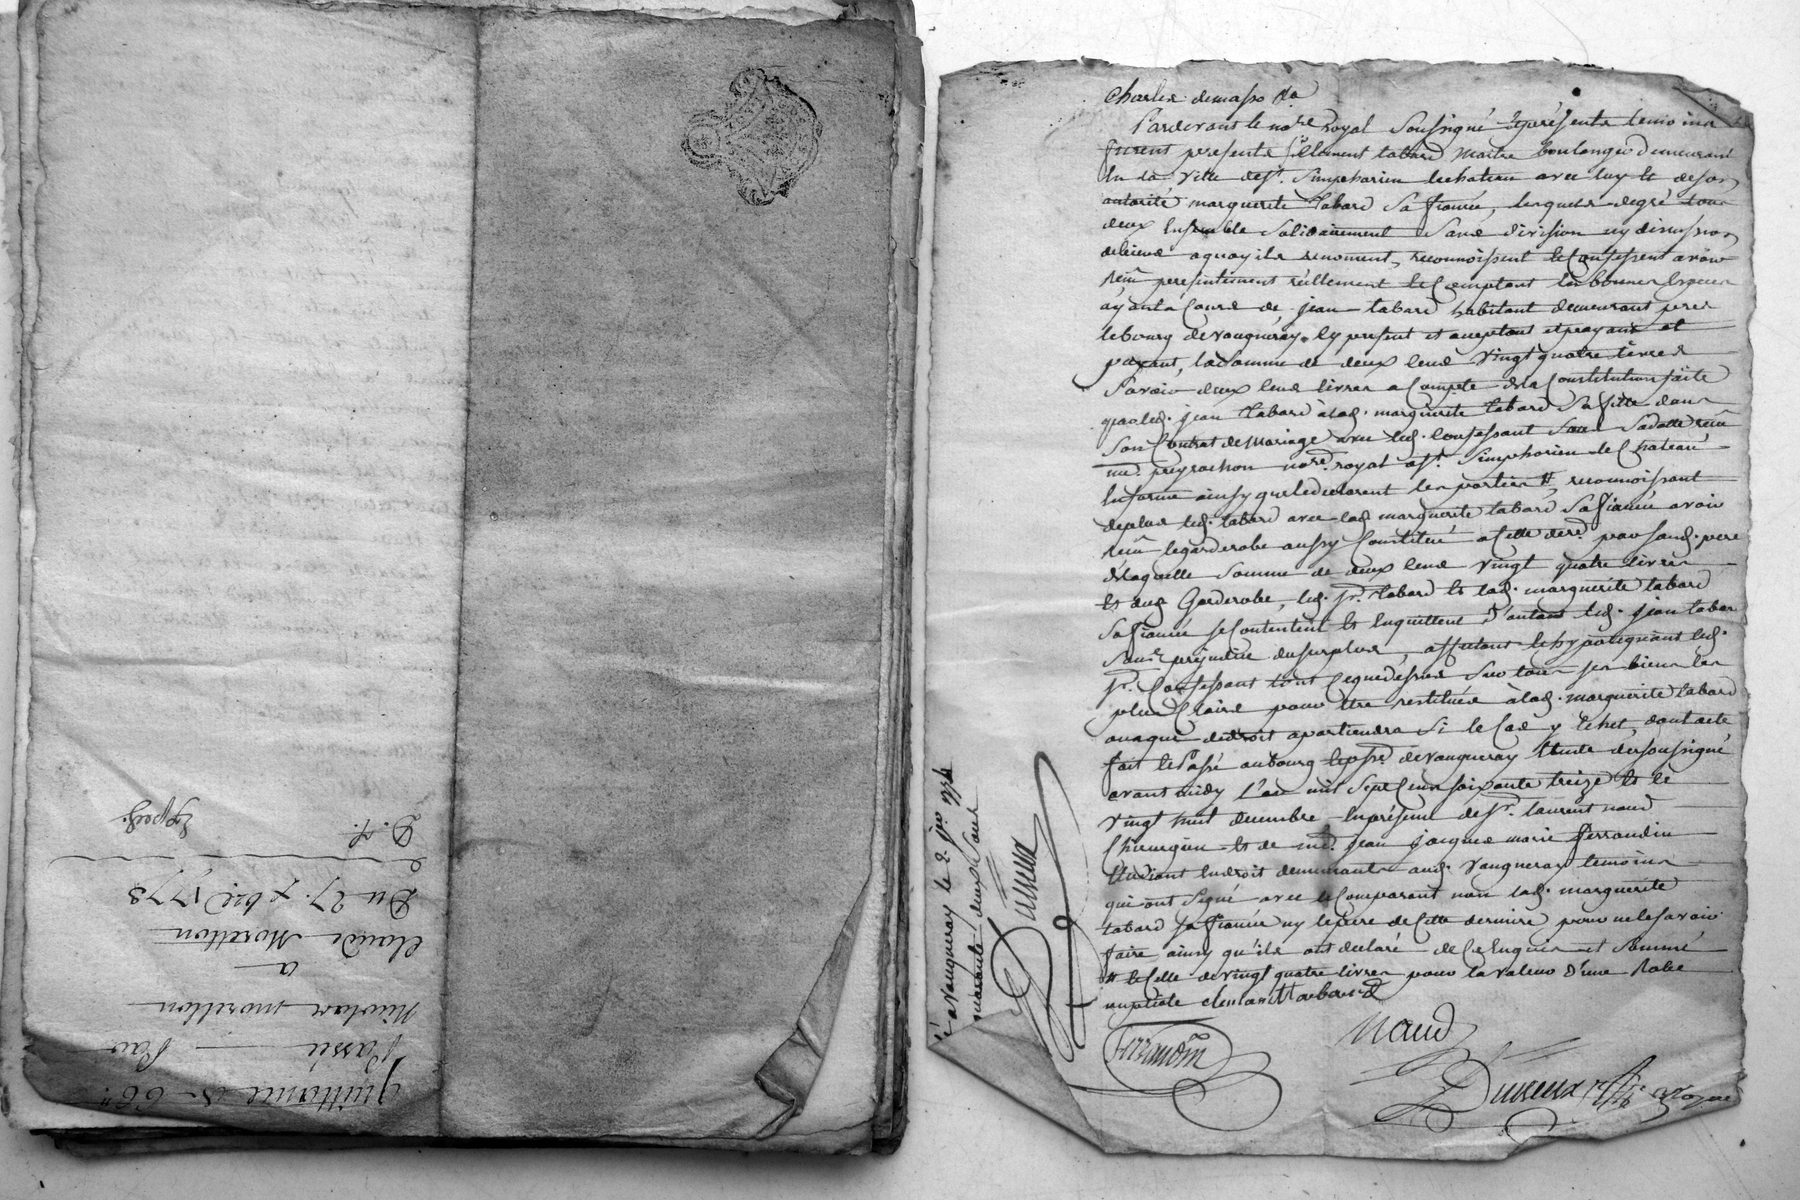 Quittance de 66 ll
Passée Par
Nicolas morellon
a
Claude Morellon
Du 27. xbre 1773
D. N. Expedi.
Charles demasso &a
Pardevant le nore. royal soussigné & présents temoins
furent presents sr. Clement tabard maitre boulanger demeurant
En la ville de st. simphorien lechateau avec luy & de son
autorité marguerite tabard sa fiancée, lesquels degré tous
deux Ensemble solidairement sans division ny discussion
debiens aquoy ils renoncent, reconnoissent & Confessent avoir
reçu presentement réellement & Comptant En bonnes Especes
ayants Cours de jean tabard habitant demeurant pres
lebourg de vaugneray Cy present et acceptant et payant et
payant, la somme de deux Cens vingt quatre livres
savoir deux Cens livres a Compte dela Constitution faite
par led. jean tabard à lad. marguerite tabard sa fille dans
son Contrat de mariage avec led. Confessant
me. peyrachon nore. royal a st. simphorien le Chateau
En forme ainsy que le declarent les parties #, reconnoissant
deplus led. tabard avec lad. marguerite tabard sa fiancée avoir
reçu legarderobe aussy Constitué a Cette dere. par sond. pere
delaquelle somme de deux Cens vingt quatre livres
& dud. Garderobe, led. sr. tabard & lad. marguerite tabard
sa fiancée se Contentent & Enquittent d'autant led. jean tabard
sans prejudice du surplus, assurant & hypotequant led.
sr. Confessant tout Cequedessus sur tous ses biens les
plus Clairs pour Etre restitués à lad. marguerite tabard
ou a qui de droit apartiendra si le Cas y Echet, dont acte
fait & Passé au bourg & psse. de vaugneray Etude du soussigné
avant midy l'an mil sept Cent soixante treize & le
vingt huit decembre En présence de sr. laurent naud
Chirurgien & de me. jean jacques marie ferrandin
Etudiant Endroit demeurants aud. Vaugneray temoins
qui ont signé avec le Comparant non lad. marguerite
tabard sa fiancée ny le pere de Cette derniere pour ne le savoir
faire ainsy qu'ils ont declaré de Ce Enquis et sommé
# & Celle de vingt quatre livres pour la valeur d'une Robe
nuptiale
Clemant tabard
Ferrandin
Naud
Duneux
a vaugneray le 2. jer 1774
quarante deux sous
Duneux